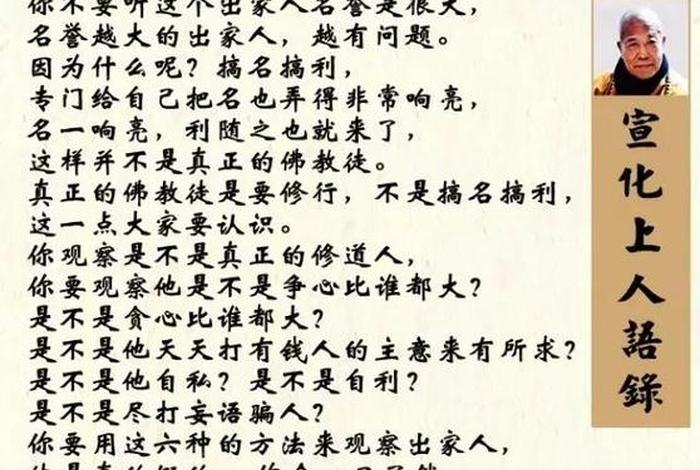 你不要听这个出家人名誉是很大，
名誉越大的出家人，越有问题。
因为什么呢？搞名搞利，
专门给自己把名也弄得非常响亮，
名一响亮，利随之也就来了，
这样并不是真正的佛教徒。
真正的佛教徒是要修行，不是搞名搞利，
这一点大家要认识。
你观察是不是真正的修道人，
你要观察他是不是争心比谁都大？
是不是貪心比谁都大？
是不是他天天打有钱人的主意来有所求？
是不是他自私？是不是自利？
是不是尽打妄语骗人？
你要用这六种的方法来观察出家人，
宣化上人語錄